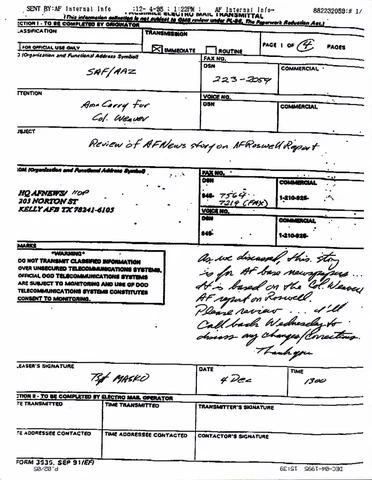 SENT BY:AF Internal Info ;12- 4-95 ; 1:22PM ; AF Internal Info- 882232059:# 1/
FACSIMILE ELECTRO MAIL TRANSMITTAL
(This information collection is not subject to OMB review under PL-96, The Paperwork Reduction Act.)
ECTION I - TO BE COMPLETED BY ORIGINATOR
LASSIFICATION
TRANSMISSION
FOR OFFICIAL USE ONLY
IMMEDIATE
ROUTINE
PAGE 1 OF 4 PAGES
O (Organization and Functional Address Symbol)
FAX NO.
DSN
COMMERCIAL
SAF/AAZ
223-2059
TTENTION
VOICE NO.
DSN
COMMERCIAL
Ann Carry for
Col. Weaver
UBJECT
Review of AFNews story on AF Roswell Report
OM (Organization and Functional Address Symbol)
FAX NO.
DSN
COMMERCIAL
HQ AFNEWS/ IIOP
203 NORTON ST
KELLY AFB TX 78241-6105
945- 7564
7219 (FAX)
1-210-925-
VOICE NO.
DSN
COMMERCIAL
945-
1-210-925-
MARKS
"WARNING"
DO NOT TRANSMIT CLASSIFIED INFORMATION
OVER UNSECURED TELECOMMUNICATIONS SYSTEMS.
OFFICIAL DOD TELECOMMUNICATIONS SYSTEMS
ARE SUBJECT TO MONITORING AND USE OF DOD
TELECOMMUNICATIONS SYSTEMS CONSTITUTES
CONSENT TO MONITORING.
As we discussed, this story
is for AF base newspapers...
It is based on the Col. Weaver
AF report on Roswell.
Please review ... I'll
Call back Wednesday to
discuss any changes/Corrections.
Thank you
LEASER'S SIGNATURE
DATE
TIME
MASKO
4 Dec
1300
CTION II - TO BE COMPLETED BY ELECTRO MAIL OPERATOR
TE TRANSMITTED
TIME TRANSMITTED
TRANSMITTER'S SIGNATURE
TE ADDRESSEE CONTACTED
TIME ADDRESSEE CONTACTED
CONTACTOR'S SIGNATURE
FORM 3535, SEP 91(EF)
P.02/05
DEC-04-1995 15:39